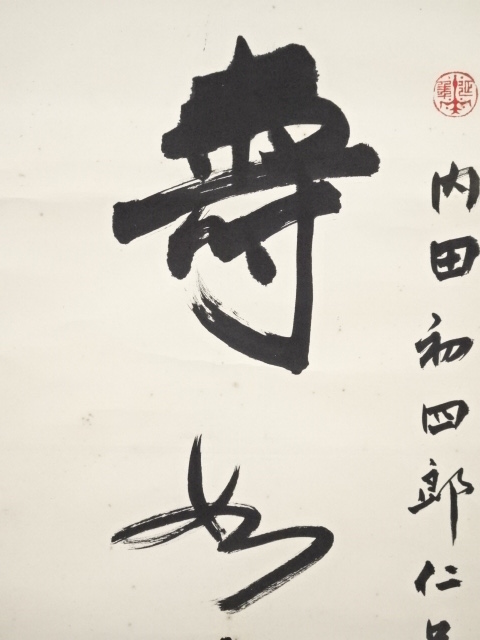 内田初四郎仁
壽如